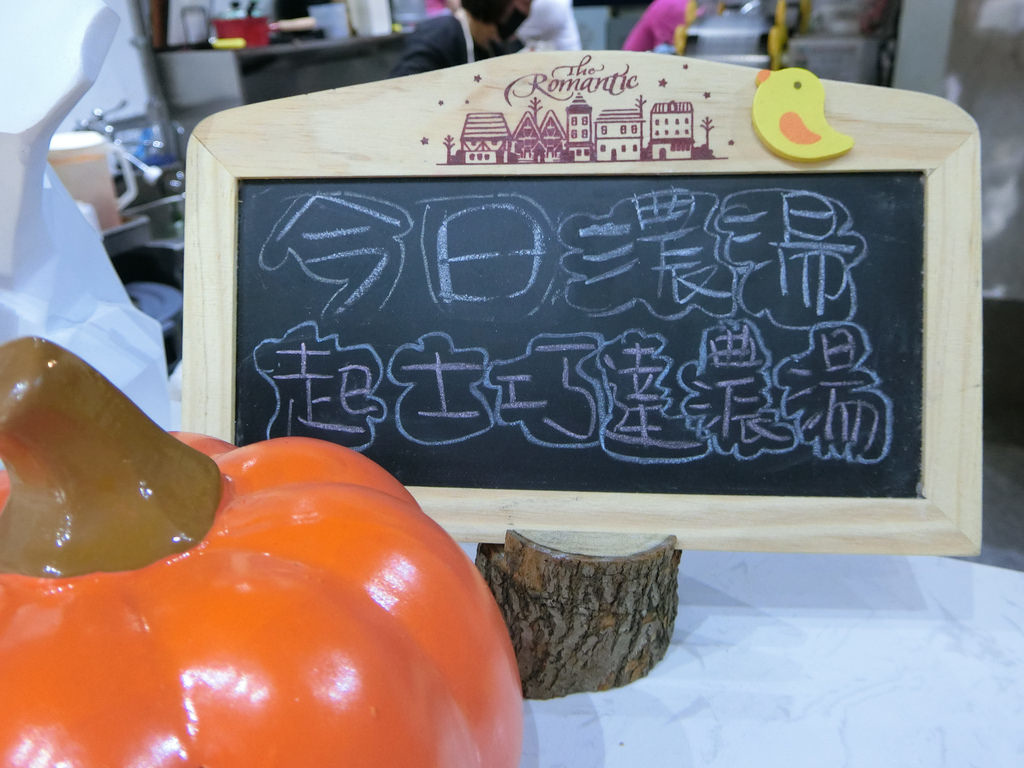 The
Romantic
今日濃湯
起士巧達濃湯